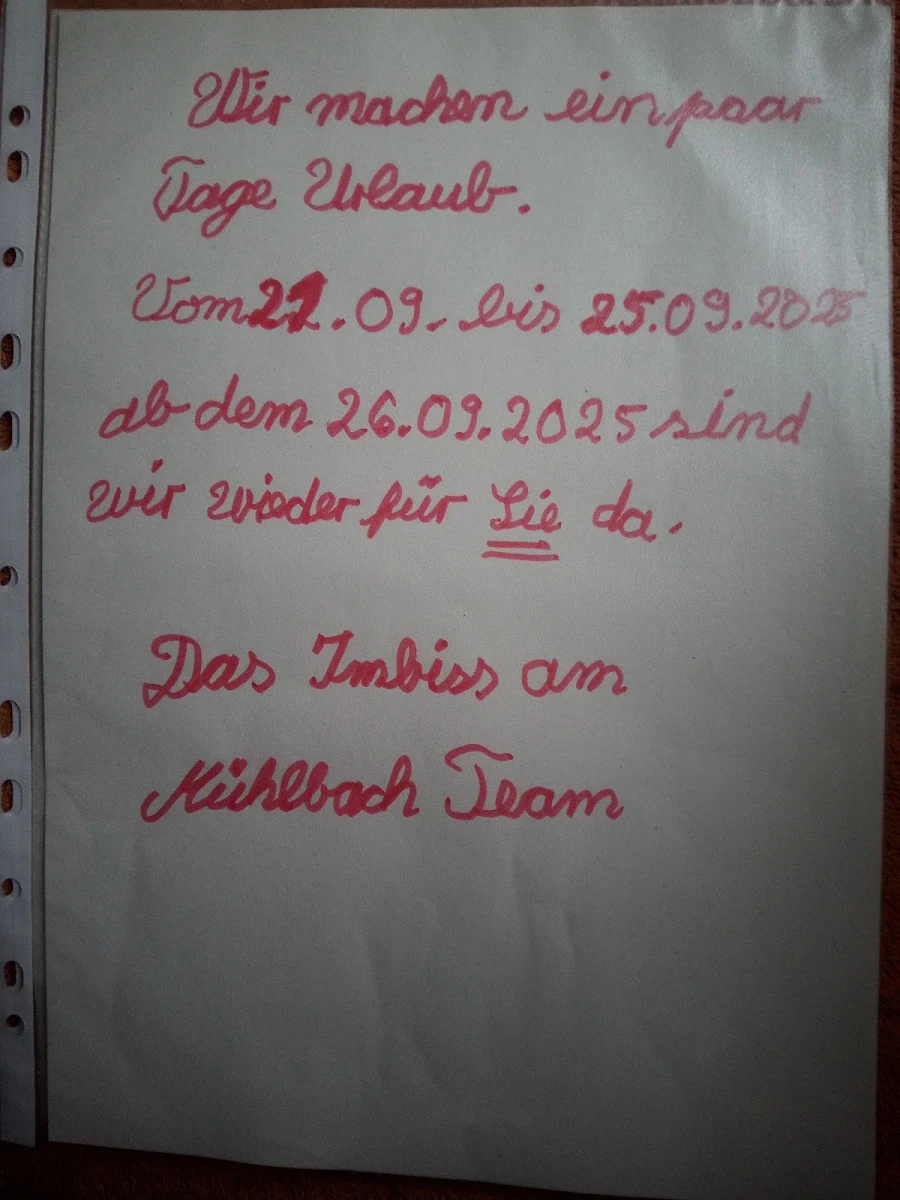 Wir machen ein paar
Tage Urlaub.
Vom 21.09. bis 25.09.2025
ab dem 26.09.2025 sind
wir wieder für Sie da.
Das Imbiss am
Mühlbach Team